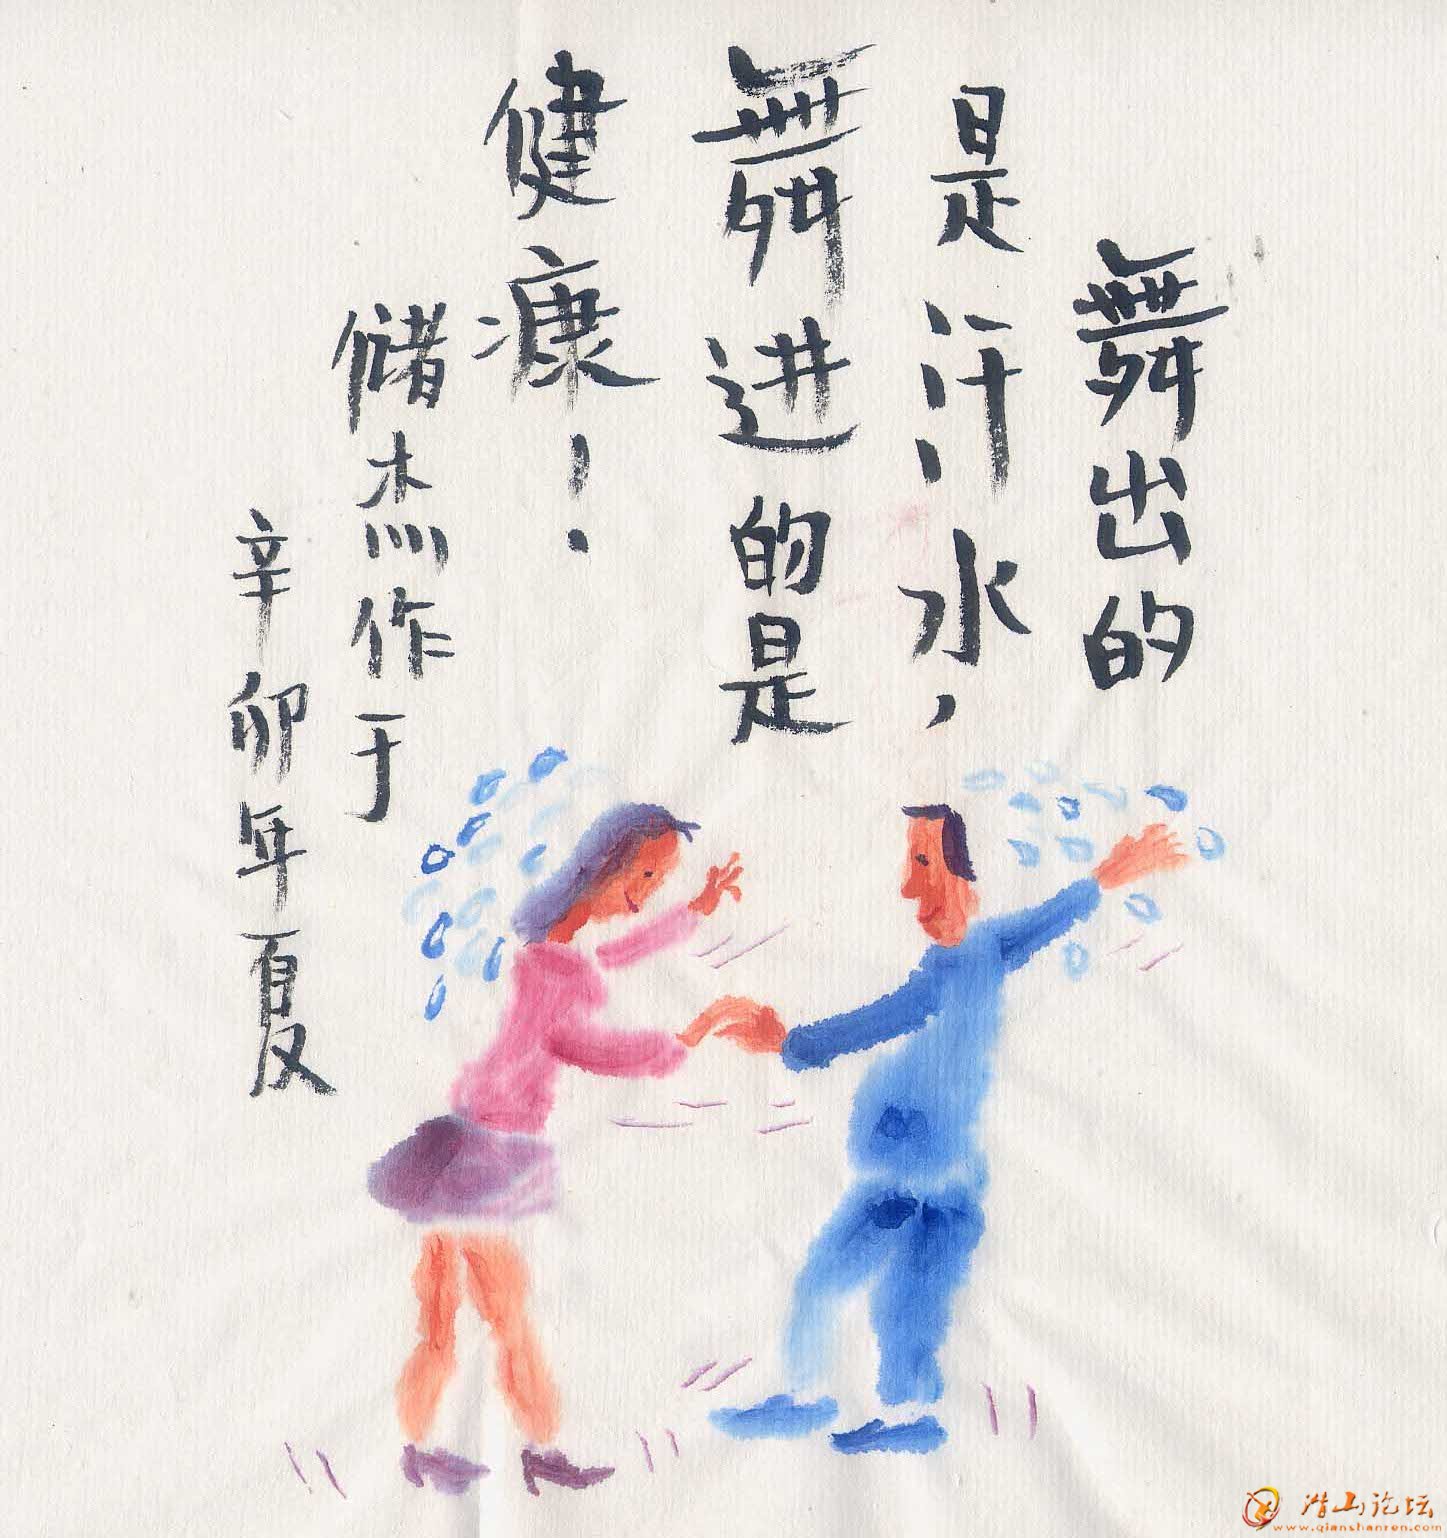 舞出的
是汗水，
舞进的是
健康！
储杰作于
辛卯年夏
潜山论坛
www.qianshanren.com